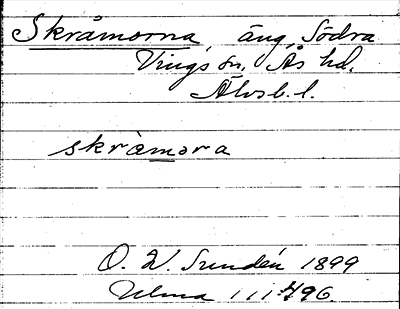 Skråmorna, äng, Södra
Vings sn, Ås hd,
Älvsb. l.
skràmora
O. W. Sundén 1899
Ulma 111:496.